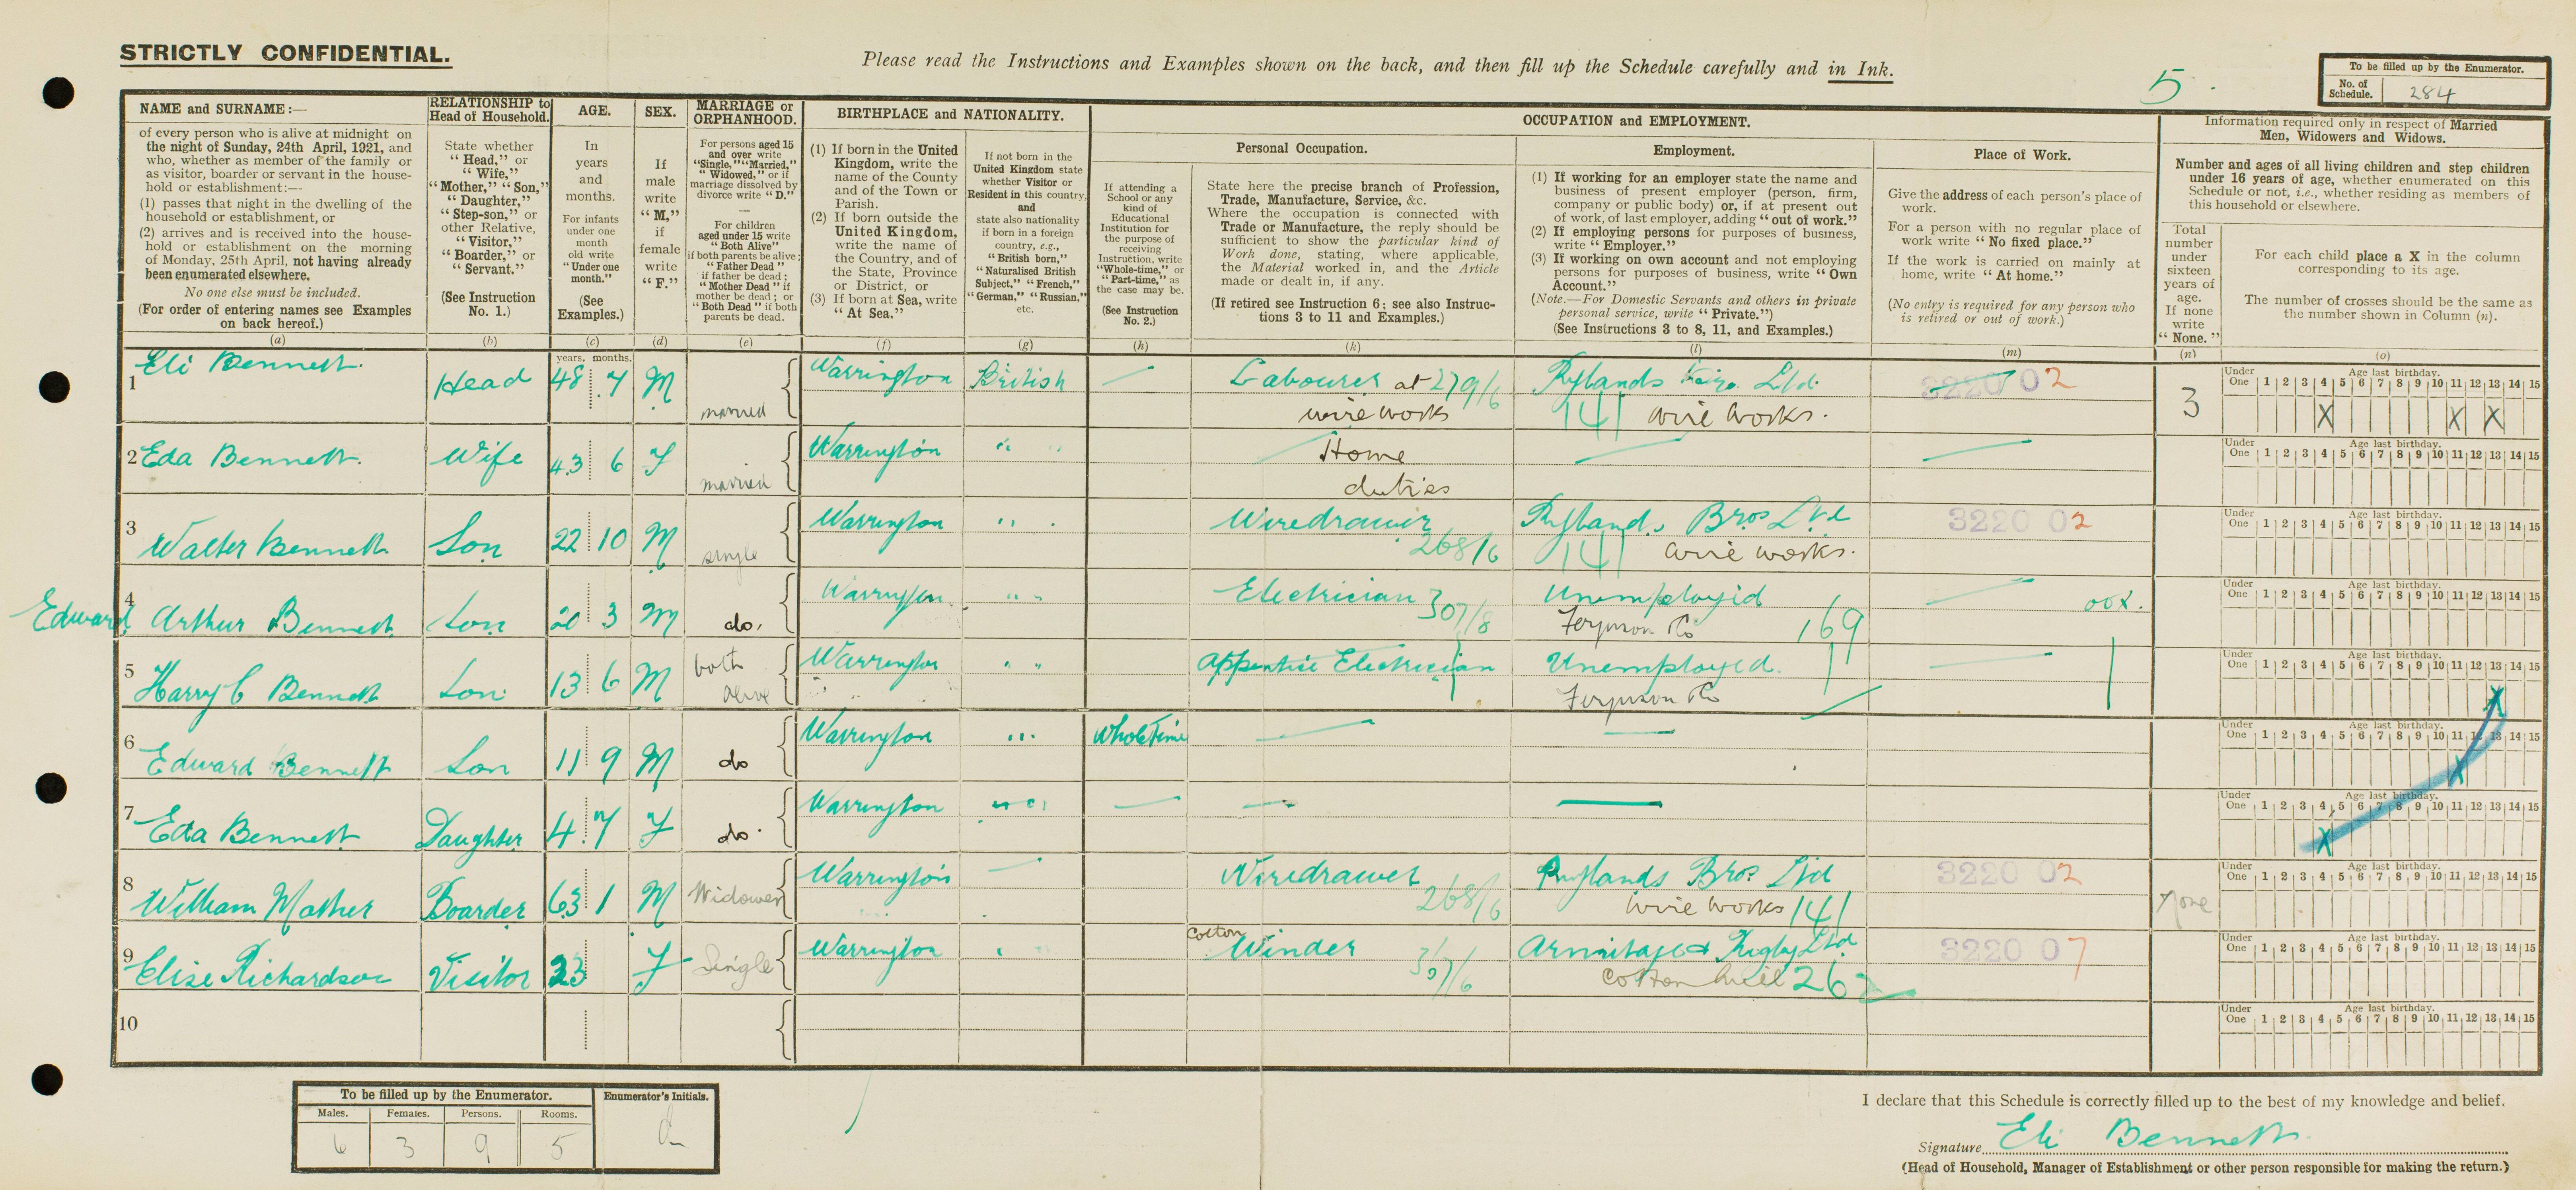 STRICTLY CONFIDENTIAL.
Please read the Instructions and Examples shown on the back, and then fill up the Schedule carefully and in Ink.
5
To be filled up by the Enumerator.
No. of Schedule. 284
NAME and SURNAME:—
of every person who is alive at midnight on
the night of Sunday, 24th April, 1921, and
who, whether as member of the family or
as visitor, boarder or servant in the house-
hold or establishment:—
(1) passes that night in the dwelling of the
household or establishment, or
(2) arrives and is received into the house-
hold or establishment on the morning
of Monday, 25th April, not having already
been enumerated elsewhere.
No one else must be included.
(For order of entering names see Examples
on back hereof.)
(a)
RELATIONSHIP to
Head of Household.
State whether
"Head," or
"Wife,"
"Mother," "Son,"
"Daughter,"
"Step-son," or
other Relative,
"Visitor,"
"Boarder," or
"Servant."
(See Instruction
No. 1.)
(b)
AGE.
In
years
and
months.
For infants
under one
month
old write
"Under one
month."
(See
Examples.)
(c)
SEX.
If
male
write
"M,"
if
female
write
"F."
(d)
MARRIAGE or
ORPHANHOOD.
For persons aged 15
and over write
"Single," "Married,"
"Widowed," or if
marriage dissolved by
divorce write "D."
—
For children
aged under 15 write
"Both Alive"
if both parents be alive;
"Father Dead"
if father be dead;
"Mother Dead" if
mother be dead; or
"Both Dead" if both
parents be dead.
(e)
BIRTHPLACE and NATIONALITY.
(1) If born in the United
Kingdom, write the
name of the County
and of the Town or
Parish.
(2) If born outside the
United Kingdom,
write the name of
the Country, and of
the State, Province
or District, or
(3) If born at Sea, write
"At Sea."
(f)
If not born in the
United Kingdom state
whether Visitor or
Resident in this country,
and
state also nationality
if born in a foreign
country, e.g.,
"British born,"
"Naturalised British
Subject," "French,"
"German," "Russian,"
etc.
(g)
OCCUPATION and EMPLOYMENT.
Personal Occupation.
If attending a
School or any
kind of
Educational
Institution for
the purpose of
receiving
Instruction, write
"Whole-time," or
"Part-time," as
the case may be.
(See Instruction
No. 2.)
(h)
State here the precise branch of Profession,
Trade, Manufacture, Service, &c.
Where the occupation is connected with
Trade or Manufacture, the reply should be
sufficient to show the particular kind of
Work done, stating, where applicable,
the Material worked in, and the Article
made or dealt in, if any.
(If retired see Instruction 6; see also Instruc-
tions 3 to 11 and Examples.)
(k)
Employment.
(1) If working for an employer state the name and
business of present employer (person, firm,
company or public body) or, if at present out
of work, of last employer, adding "out of work."
(2) If employing persons for purposes of business,
write "Employer."
(3) If working on own account and not employing
persons for purposes of business, write "Own
Account."
(Note.—For Domestic Servants and others in private
personal service, write "Private.")
(See Instructions 3 to 8, 11, and Examples.)
(l)
Place of Work.
Give the address of each person's place of
work.
For a person with no regular place of
work write "No fixed place."
If the work is carried on mainly at
home, write "At home."
(No entry is required for any person who
is retired or out of work.)
(m)
Information required only in respect of Married
Men, Widowers and Widows.
Number and ages of all living children and step children
under 16 years of age, whether enumerated on this
Schedule or not, i.e., whether residing as members of
this household or elsewhere.
Total
number
under
sixteen
years of
age.
If none
write
"None."
(n)
For each child place a X in the column
corresponding to its age.
The number of crosses should be the same as
the number shown in Column (n).
(o)
years. months.
1 Eli Bennett. Head 48 7 M married Warrington British — Labourer at wire works 279/6 Rylands Ltd. 141 wire works. 3220 02 3 X X X
Under One Age last birthday. 1 2 3 4 5 6 7 8 9 10 11 12 13 14 15
2 Eda Bennett. Wife 43 6 F married Warrington " " Home duties — —
Under One Age last birthday. 1 2 3 4 5 6 7 8 9 10 11 12 13 14 15
3 Walter Bennett Son 22 10 M single Warrington " " Wiredrawer 268/6 Rylands Bros Ltd 141 wire works. 3220 02
Under One Age last birthday. 1 2 3 4 5 6 7 8 9 10 11 12 13 14 15
4 Edward Arthur Bennett Son 20 3 M do. Warrington " " Electrician 307/8 Unemployed Ferguson Co 169 — oox.
Under One Age last birthday. 1 2 3 4 5 6 7 8 9 10 11 12 13 14 15
5 Harry C Bennett Son 13 6 M both alive Warrington " " Apprentice Electrician Unemployed. Ferguson Co —
Under One Age last birthday. 1 2 3 4 5 6 7 8 9 10 11 12 13 14 15
X
6 Edward Bennett Son 11 9 M do Warrington " " Whole Time — —
Under One Age last birthday. 1 2 3 4 5 6 7 8 9 10 11 12 13 14 15
X
7 Eda Bennett Daughter 4 7 F do. Warrington " " — — —
Under One Age last birthday. 1 2 3 4 5 6 7 8 9 10 11 12 13 14 15
X
8 William Mather Boarder 63 1 M Widower Warrington — Wiredrawer 268/6 Rylands Bros Ltd wire works 141 3220 02 None
Under One Age last birthday. 1 2 3 4 5 6 7 8 9 10 11 12 13 14 15
9 Elise Richardson Visitor 23 F Single Warrington Cotton Winder Armitage & Rigby Ltd Cotton Mill 262 3220 07
Under One Age last birthday. 1 2 3 4 5 6 7 8 9 10 11 12 13 14 15
10
Under One Age last birthday. 1 2 3 4 5 6 7 8 9 10 11 12 13 14 15
To be filled up by the Enumerator.
Enumerator's Initials.
Males. Females. Persons. Rooms.
6 3 9 5
I declare that this Schedule is correctly filled up to the best of my knowledge and belief.
Signature Eli Bennett.
(Head of Household, Manager of Establishment or other person responsible for making the return.)